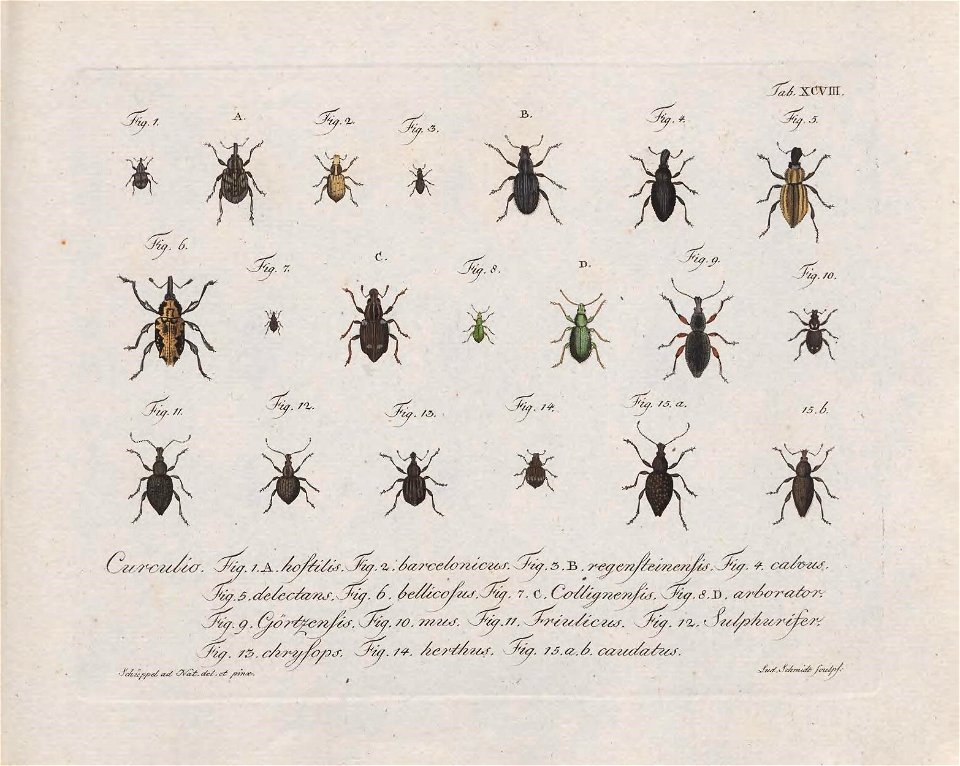 Tab. XCVIII.
Fig. 1. A. Fig. 2. Fig. 3. B. Fig. 4. Fig. 5.
Fig. 6. Fig. 7. C. Fig. 8. D. Fig. 9 Fig. 10.
Fig. 11. Fig. 12. Fig. 13. Fig. 14. Fig. 15. a. 15. b.
Curculio. Fig. 1. A. hoſtilis. Fig. 2. barcelonicus. Fig. 3. B. regenſteinenſis. Fig. 4. calvus.
Fig. 5. delectans. Fig. 6. bellicoſus. Fig. 7. C. Collignenſis. Fig. 8. D. arborator.
Fig. 9. Görtzenſis. Fig. 10. mus. Fig. 11. Friulicus. Fig. 12. Sulphurifer.
Fig. 13. chryſops. Fig. 14. herthus. Fig. 15. a. b. caudatus.
Schüppel ad Nat. del. et pinx. Lud. Schmidt ſculpſ.